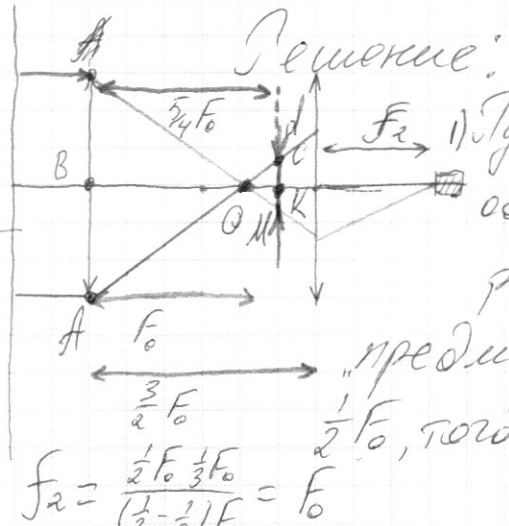 Решение:
A
5/4 F₀
d
C
f₂
1) Пу
B
O
M
K
ос
A
F₀
"предм
3/2 F₀
1/2 F₀, того
f₂ = (1/2 F₀ 1/3 F₀)/((1/2 - 1/3) F) = F₀